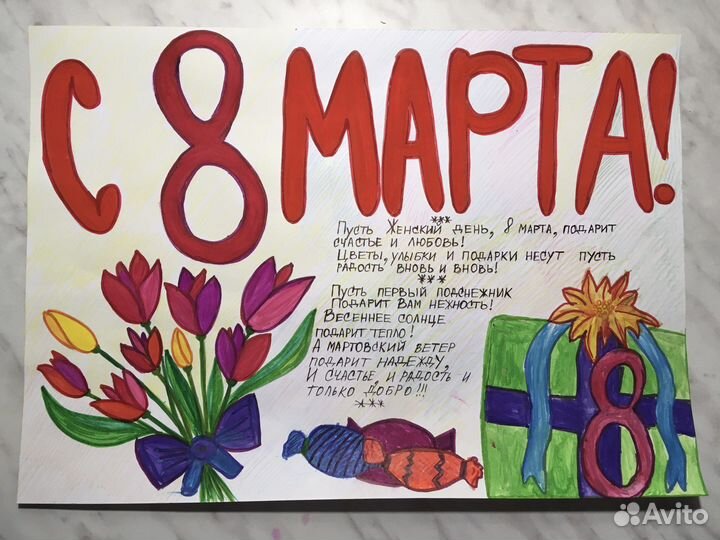 С 8 МАРТА!
***
Пусть Женский день, 8 марта, подарит
счастье и любовь!
Цветы, улыбки и подарки несут пусть
радость вновь и вновь!
***
Пусть первый подснежник
Подарит Вам нежность!
Весеннее солнце
подарит тепло!
А мартовский ветер
подарит надежду,
И счастье, и радость и
только добро!!!
***
8
Avito